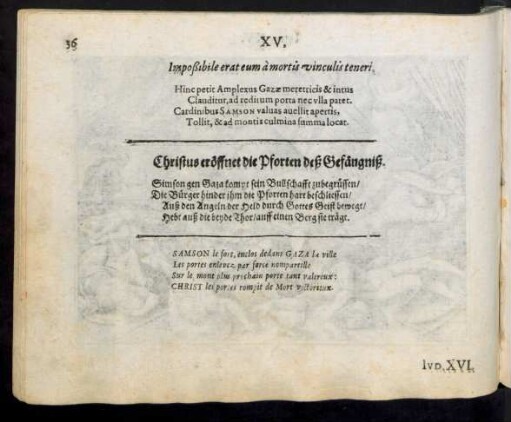 36
XV.
Impoßibile erat eum à mortis vinculis teneri.
Hinc petit Amplexus Gazæ meretricis & intus
Clauditur, ad reditum porta nec vlla patet.
Cardinibus SAMSON valuas auellit apertis,
Tollit, & ad montis culmina summa locat.
Christus eröffnet die Pforten deß Gefängniß.
Simson gen Gaza kompt sein Bulschafft zubegrüssen/
Die Bürger hinder jhm die Pforten hart beschliessen/
Auß den Angeln der Held durch Gottes Geist bewegt/
Hebt auß die beyde Thor/ auff einen Berg sie trägt.
SAMSON le fort, enclos dedans GAZA la ville
Les portes enlevez par force nompareille
Sur le mont plus prochain porte tant valereux:
CHRIST les portes rompit de Mort victorieux.
IVD. XVI.